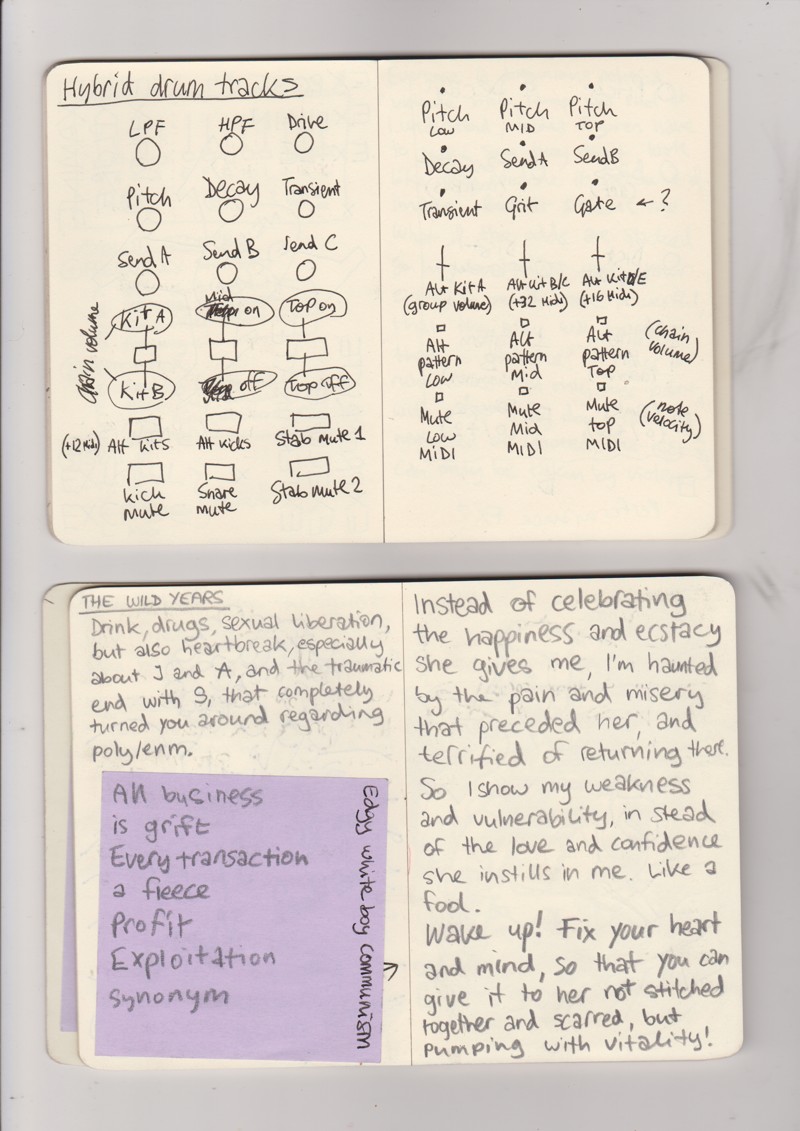 Hybrid drum tracks
LPF HPF Drive
Pitch Decay Transient
Send A Send B Send C
Kit A Mid on Top on
chain volume
Kit B off Top off
(+12 Midi) Alt kits Alt kicks Stab mute 1
kick Snare Stab mute 2
mute mute
Pitch Pitch Pitch
LOW MID TOP
Decay Send A Send B
Transient Grit Gate ← ?
Alt Kit A Alt Kit B/C Alt Kit D/E
(group volume) (+32 Midi) (+16 Midi)
Alt Alt Alt (chain
pattern pattern pattern volume)
Low Mid Top
Mute Mute Mute (note
Low Mid top velocity)
MIDI MIDI MIDI
THE WILD YEARS
Drink, drugs, sexual liberation,
but also heartbreak, especially
about J and A, and the traumatic
end with S, that completely
turned you around regarding
poly/enm.
All business
is grift
Every transaction
a fleece
Profit
Exploitation
synonym
Edgy white boy communism
Instead of celebrating
the happiness and ecstacy
she gives me, I'm haunted
by the pain and misery
that preceded her, and
terrified of returning there.
So I show my weakness
and vulnerability, in stead
of the love and confidence
she instills in me. Like a
fool.
Wake up! Fix your heart
and mind, so that you can
give it to her not stitched
together and scarred, but
pumping with vitality!